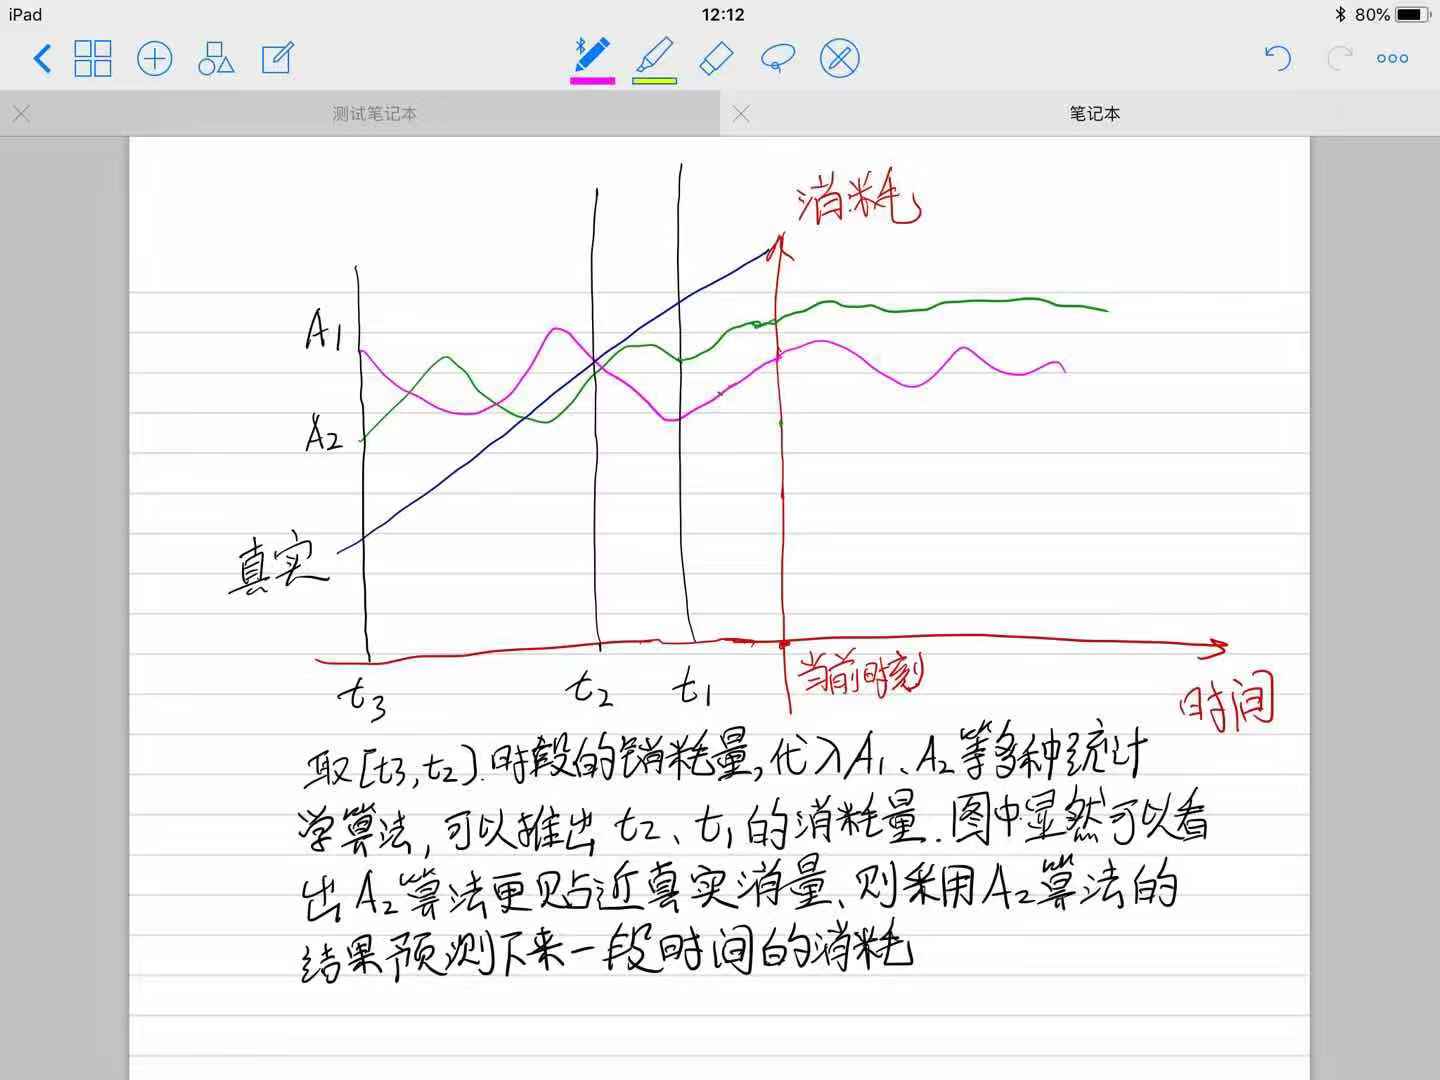 iPad
12:12
80%
测试笔记本
笔记本
消耗
A1
A2
真实
t3
t2
t1
当前时刻
时间
取[t3,t2].时段的销耗量,代入A1、A2等多种统计
学算法,可以推出t2、t1的消耗量.图中显然可以看
出A2算法更贴近真实消量、则采用A2算法的
结果预测下来一段时间的消耗